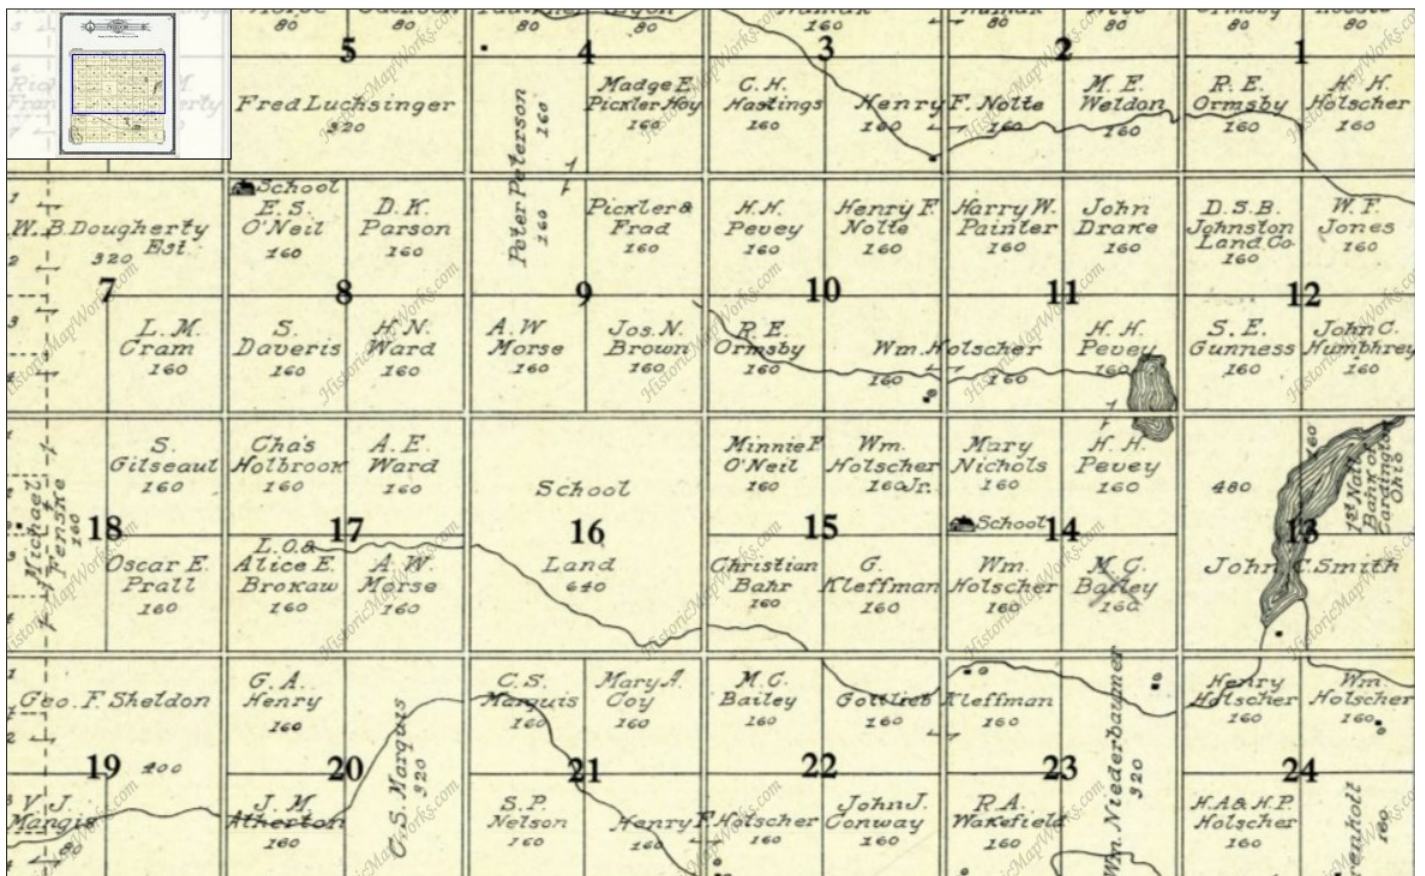 80
80
80
80
160
80
80
80
80
5
4
3
2
1
Fred Luchsinger
320
Peter Peterson
160
160
Madge E.
Pickler Hoy
160
C. H.
Hastings
160
Henry F. Nolte
160
160
M. E.
Weldon
160
R. E.
Ormsby
160
H. H.
Holscher
160
1
W. B. Dougherty
Est.
2
320
School
E. S.
O'Neil
160
D. K.
Parson
160
Pickler &
Frad
160
H. H.
Pevey
160
Henry F.
Nolte
160
Harry W.
Painter
160
John
Drake
160
D. S. B.
Johnston
Land Co.
160
W. F.
Jones
160
7
8
9
10
11
12
3
4
L. M.
Cram
160
S.
Daveris
160
H. N.
Ward
160
A. W
Morse
160
Jos. N.
Brown
160
R. E.
Ormsby
160
Wm. Holscher
160
160
H. H.
Pevey
160
S. E.
Gunness
160
John C.
Humphrey
160
Michael
Fenske
160
S.
Gilseaut
160
Chas
Holbrook
160
A. E.
Ward
160
School
Land
640
Minnie F
O'Neil
160
Wm.
Holscher
160 Jr.
Mary
Nichols
160
H. H.
Pevey
160
480
160
1st Natl
Bank of
Cardington
Ohio
18
17
16
15
School
14
13
Oscar E.
Prall
160
L. O. &
Alice E.
Brokaw
160
A. W.
Morse
160
Christian
Bahr
160
G.
Kleffman
160
Wm.
Holscher
160
M. C.
Bailey
160
John C. Smith
1
Geo. F. Sheldon
2
400
G. A.
Henry
160
C. S. Marquis
320
C. S.
Marquis
160
Mary A.
Coy
160
M. C.
Bailey
160
Gottlieb Kleffman
160
160
Wm. Niederbaumer
320
Henry
Holscher
160
Wm.
Holscher
160
19
20
21
22
23
24
V. J.
Mangis
80
J. M.
Atherton
160
S. P.
Nelson
160
Henry F. Holscher
160
160
John J.
Conway
160
R. A.
Wakefield
160
H. A. & H. P.
Holscher
160
160
HistoricMapWorks.com